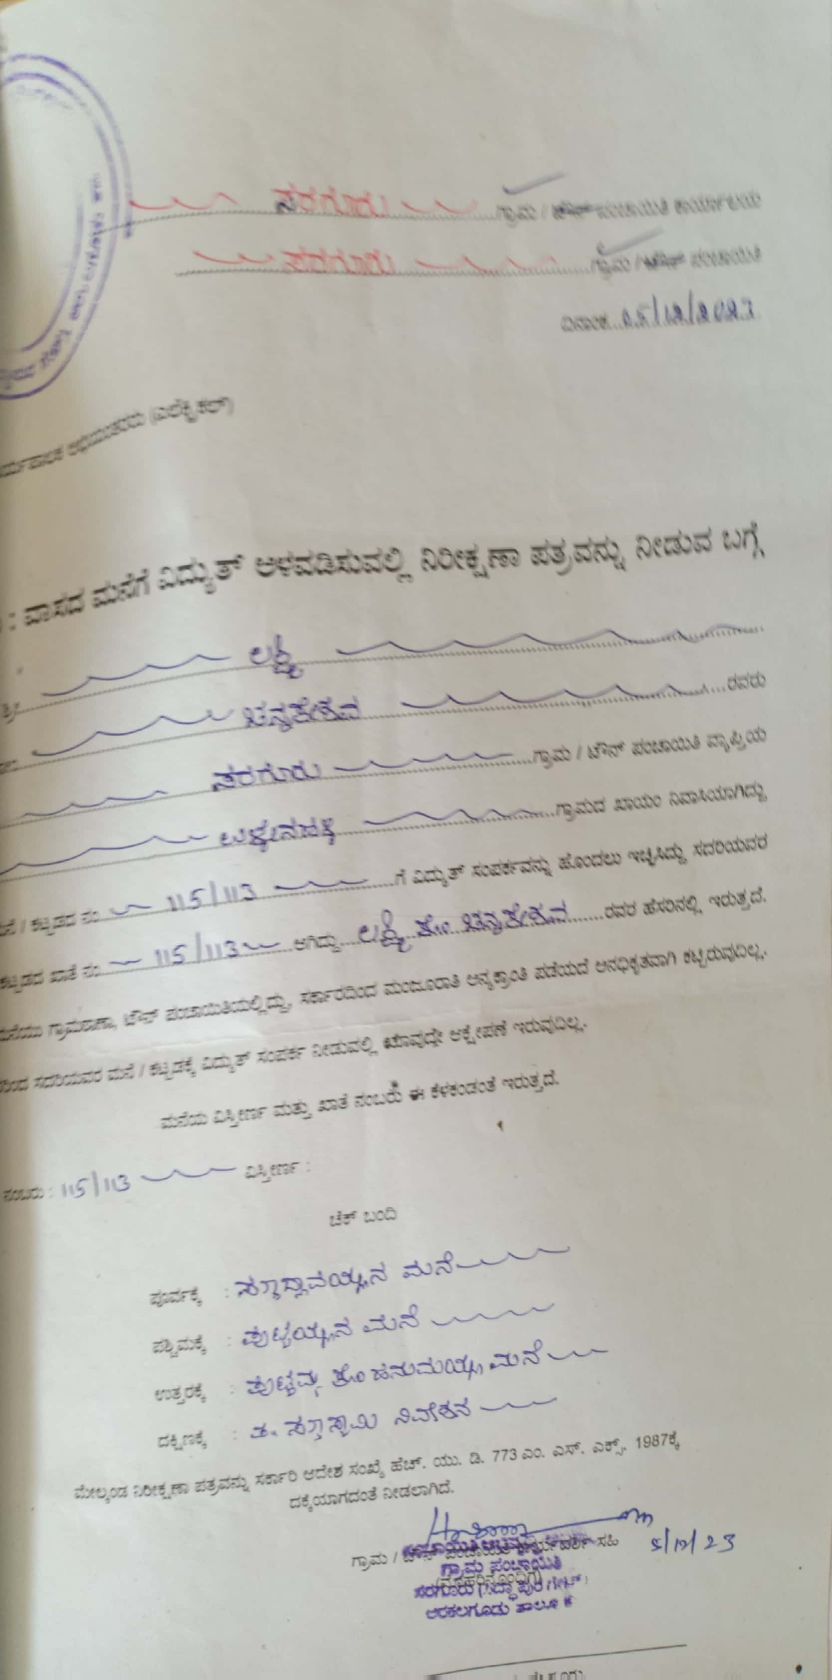 ಸರಗೂರು ಗ್ರಾಮ / ಟೌನ್ ಪಂಚಾಯಿತಿ ಕಾರ್ಯಾಲಯ
ಸರಗೂರು ಗ್ರಾಮ / ಟೌನ್ ಪಂಚಾಯಿತಿ
ದಿನಾಂಕ 05/12/2023
(ಎಲೆಕ್ಟ್ರಿಕಲ್)
: ವಾಸದ ಮನೆಗೆ ವಿದ್ಯುತ್ ಅಳವಡಿಸುವಲ್ಲಿ ನಿರೀಕ್ಷಣಾ ಪತ್ರವನ್ನು ನೀಡುವ ಬಗ್ಗೆ
ಲಕ್ಷ್ಮಿ
ಚನ್ನಕೇಶವ ರವರು
ಸರಗೂರು ಗ್ರಾಮ / ಟೌನ್ ಪಂಚಾಯಿತಿ ವ್ಯಾಪ್ತಿಯ
ಗ್ರಾಮದ ಖಾಯಂ ನಿವಾಸಿಯಾಗಿದ್ದು
/ ಕಟ್ಟಡದ ನಂ 115/113 ಗೆ ವಿದ್ಯುತ್ ಸಂಪರ್ಕವನ್ನು ಹೊಂದಲು ಇಚ್ಛಿಸಿದ್ದು ಸದರಿಯವರ
ಕಟ್ಟಡದ ಖಾತೆ ನಂ 115/113 ಆಗಿದ್ದು ಲಕ್ಷ್ಮಿ ಕೋಂ ಚನ್ನಕೇಶವ ರವರ ಹೆಸರಿನಲ್ಲಿ ಇರುತ್ತದೆ.
ಗ್ರಾಮಠಾಣಾ, ಟೌನ್ ಪಂಚಾಯಿತಿಯಲ್ಲಿದ್ದು, ಸರ್ಕಾರದಿಂದ ಮಂಜೂರಾತಿ ಅನ್ಯಕ್ರಾಂತಿ ಪಡೆಯದೆ ಅನಧಿಕೃತವಾಗಿ ಕಟ್ಟಿರುವುದಿಲ್ಲ.
ಸದರಿಯವರ ಮನೆ / ಕಟ್ಟಡಕ್ಕೆ ವಿದ್ಯುತ್ ಸಂಪರ್ಕ ನೀಡುವಲ್ಲಿ ಯಾವುದೇ ಆಕ್ಷೇಪಣೆ ಇರುವುದಿಲ್ಲ.
ಮನೆಯ ವಿಸ್ತೀರ್ಣ ಮತ್ತು ಖಾತೆ ನಂಬರು ಈ ಕೆಳಕಂಡಂತೆ ಇರುತ್ತದೆ.
ನಂಬರು : 115/113 ವಿಸ್ತೀರ್ಣ :
ಚೆಕ್ ಬಂದಿ
ಪೂರ್ವಕ್ಕೆ : ಮನೆ
ಪಶ್ಚಿಮಕ್ಕೆ : ಪುಟ್ಟಯ್ಯನ ಮನೆ
ಉತ್ತರಕ್ಕೆ : ಪುಟ್ಟಮ್ಮ ಕೋಂ ಹನುಮಯ್ಯ ಮನೆ
ದಕ್ಷಿಣಕ್ಕೆ : ನಿವೇಶನ
ಮೇಲ್ಕಂಡ ನಿರೀಕ್ಷಣಾ ಪತ್ರವನ್ನು ಸರ್ಕಾರಿ ಆದೇಶ ಸಂಖ್ಯೆ ಹೆಚ್. ಯು. ಡಿ. 773 ಎಂ. ಎಸ್. ಎಕ್ಸ್. 1987ಕ್ಕೆ
ದಕ್ಕೆಯಾಗದಂತೆ ನೀಡಲಾಗಿದೆ.
ಗ್ರಾಮ / ಟೌನ್ ಪಂಚಾಯಿತಿ ಸಹಿ 5/12/23
ಗ್ರಾಮ ಪಂಚಾಯಿತಿ
ಸರಗೂರು
ಅರಕಲಗೂಡು ತಾಲೂಕು